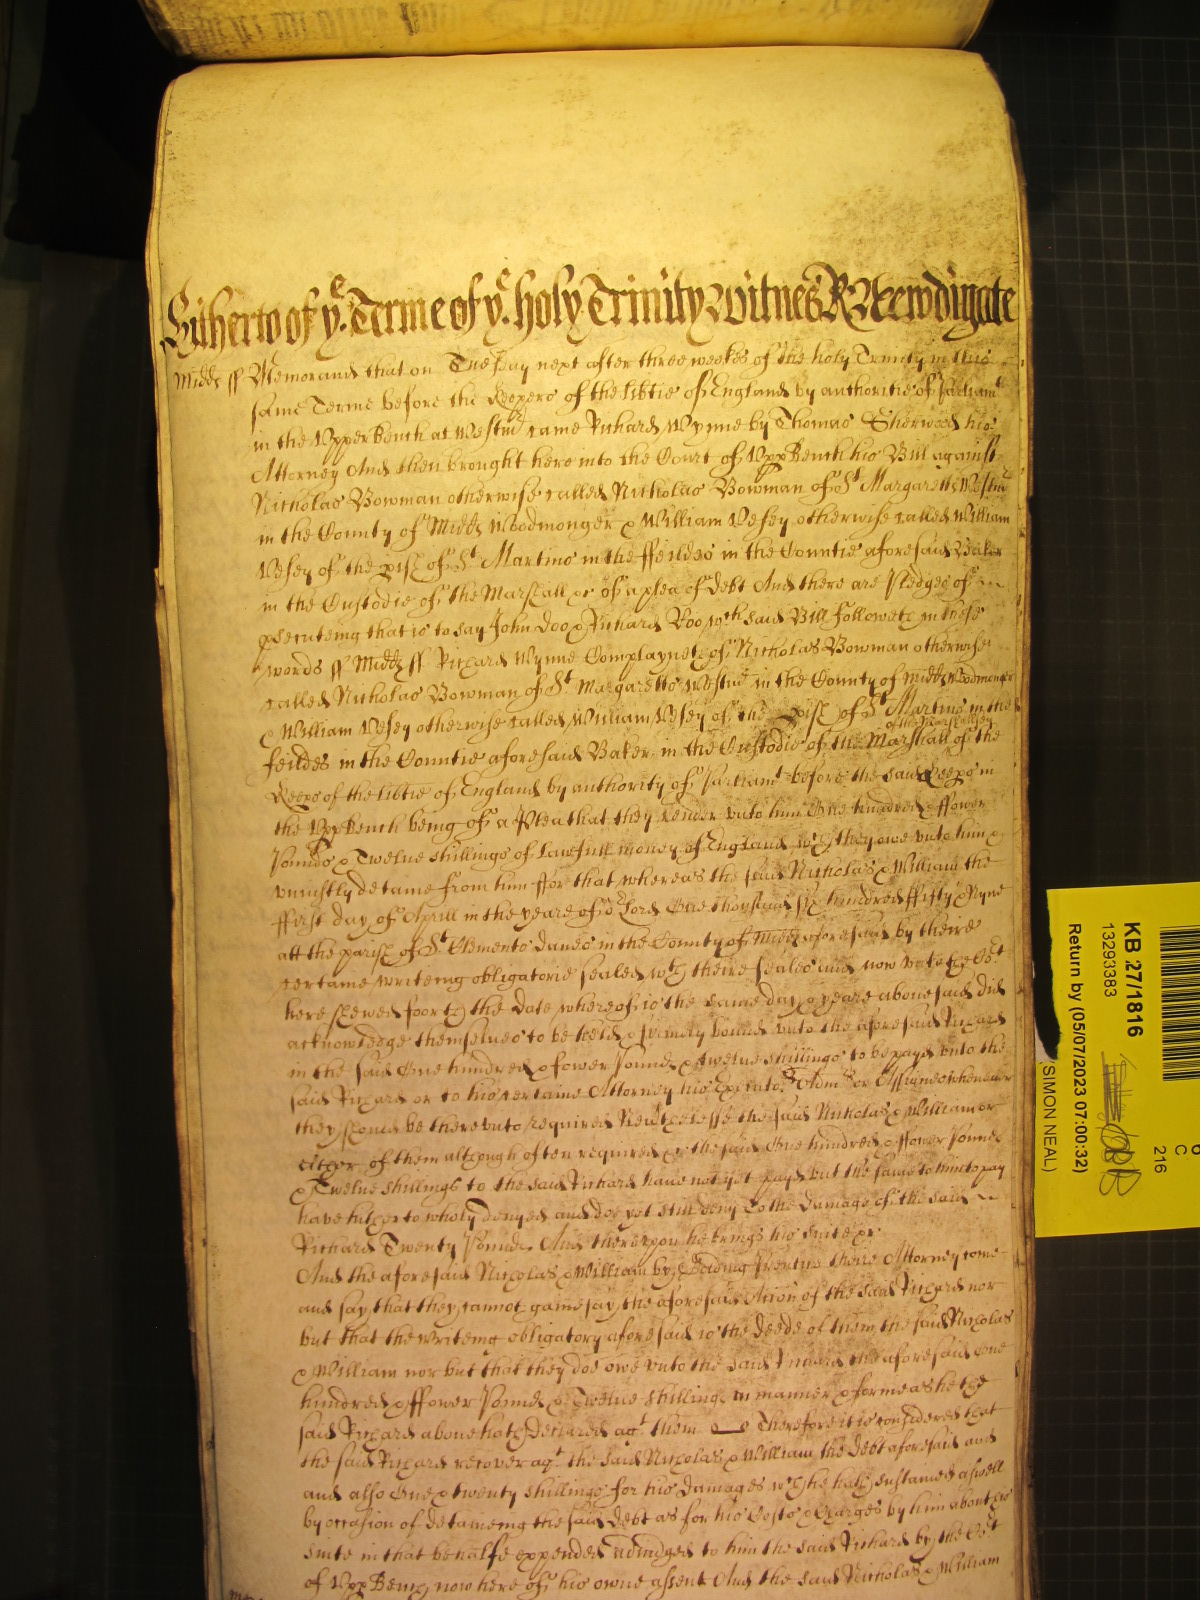 Hitherto of ye Terme of ye holy Trinity Witnes R: Newdigate
Midds ss Memorand that on Tuesday next after three weekes of the holy Trinity in this
same Terme before the Keepers of the libtie of England by authoritie of Parliamt
in the Upper Bench at Westmr came Richard Wynne by Thomas Sherwood his
Attorney And then brought here into the Court of Upp Bench his Bill against
Nicholas Bowman otherwise called Nicholas Bowman of St Margaretts Westmr
in the County of Midds Woodmonger & William Vesey otherwise called William
Vesey of the pish of St Martins in the ffeildes in the Countie aforesaid Baker
in the Custodie of the Marshall &c of a plea of debt And there are Pledges of
psecuteing that is to say John Doo & Richard Roo wch said Bill followeth in these
words ss Midds ss Richard Wynne Complayneth of Nicholas Bowman otherwise
called Nicholas Bowman of St Margaretts Westmr in the County of Midds Woodmonger
& William Vesey otherwise called William Vesey of the pish of St Martins in the
feildes in the Countie aforesaid Baker in the Custodie of the Marshall of the
of the Marshallsey
Keeps of the libtie of England by authority of Parliamt before the said Keeps in
the Upp Bench being of a Plea that they render unto him One hundred & ffower
Pounds & Twelve shillings of lawfull money of England wch they owe unto him &
uniustly detaine from him ffor that whereas the said Nicholas & William the
ffirst day of Aprill in the yeare of or Lord One thousand six hundred ffifty & Nyne
att the parish of St Clements Danes in the County of Midds aforesaid by theire
certaine writeing obligatorie sealed wth theire seales and now unto the Cort
here shewed foorth the date whereof is the same day & yeare abovesaid did
acknowledge themselves to be held & firmely bound unto the aforesaid Richard
in the said One hundred & fower Pounds & twelve shillings to be payd unto the
said Richard or to his certaine Attorney his Executors Admrs or Assignes whensoever
they should be thereunto required Neverthelesse the said Nicholas & William or
either of them although often required &c the said One hundred & ffower Pounds
& Twelve shillings to the said Richard have not yet payd but the same to him to pay
have hitherto wholy denyed and doe yet still deny To the damage of the said
Richard Twenty Pounds And thereupon he brings his suite &c
And the aforesaid Nicholas & William by their Attorney come
and say that they cannot gainesay the aforesaid Accon of the said Richard nor
but that the writeing obligatory aforesaid is the deede of them the said Nicholas
& William nor but that they doe owe unto the said Richard the aforesaid One
hundred & ffower Pounds & Twelve shillings in manner & forme as he the
said Richard above hath declared agt them Therefore it is considered that
the said Richard recover agt the said Nicholas & William the debt aforesaid and
and also One & twenty shillings for his damages wch he hath susteined aswell
by occasion of detaineing the said debt as for his Costs & Charges by him about his
suite in that behalfe expended adiudged to him the said Richard by the Cort
of Upp Bench now here of his owne assent And the said Nicholas & William
KB 27/1816
13293383
Return by (05/07/2023 07:00:32)
(SIMON NEAL)
216
C